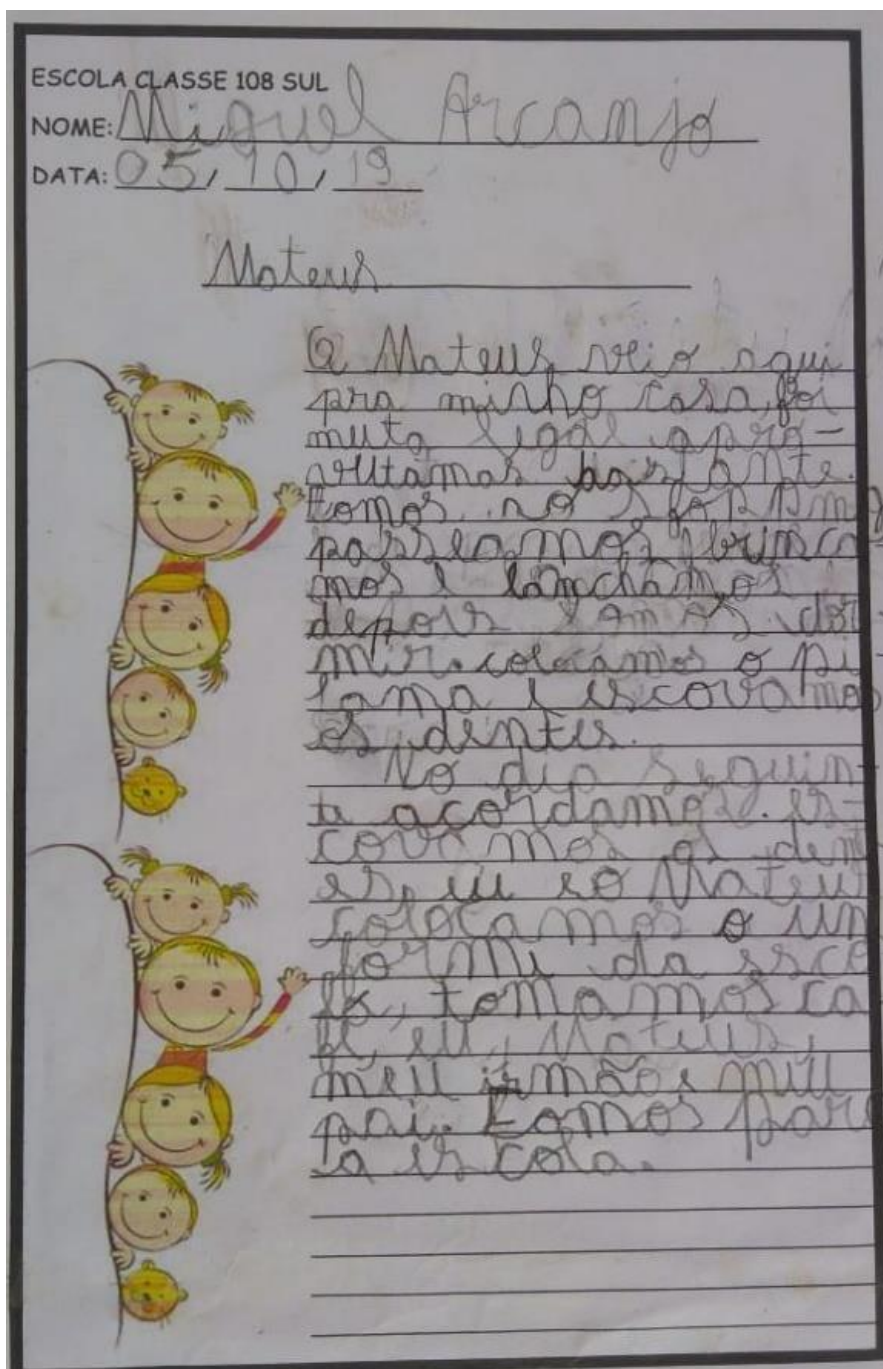 ESCOLA CLASSE 108 SUL
NOME: Miguel Arcanjo
DATA: 05/10/19
Mateus
O Mateus veio aqui
pra minha casa, foi
muto legal apro-
veitamos bastante.
Fomos no
passeamos brinca-
mos e lanchamos
depois fomos dor-
mir. colocamos o pi-
jama e escovamos
os dentes.
No dia seguin-
te acordamos. es-
covamos os dent
es, eu eo Mateus
colocamos o uni
formi da esco
la, tomamos ca
fé, eu, Mateus,
meu irmão e meu
pai. Fomos para
a escola.